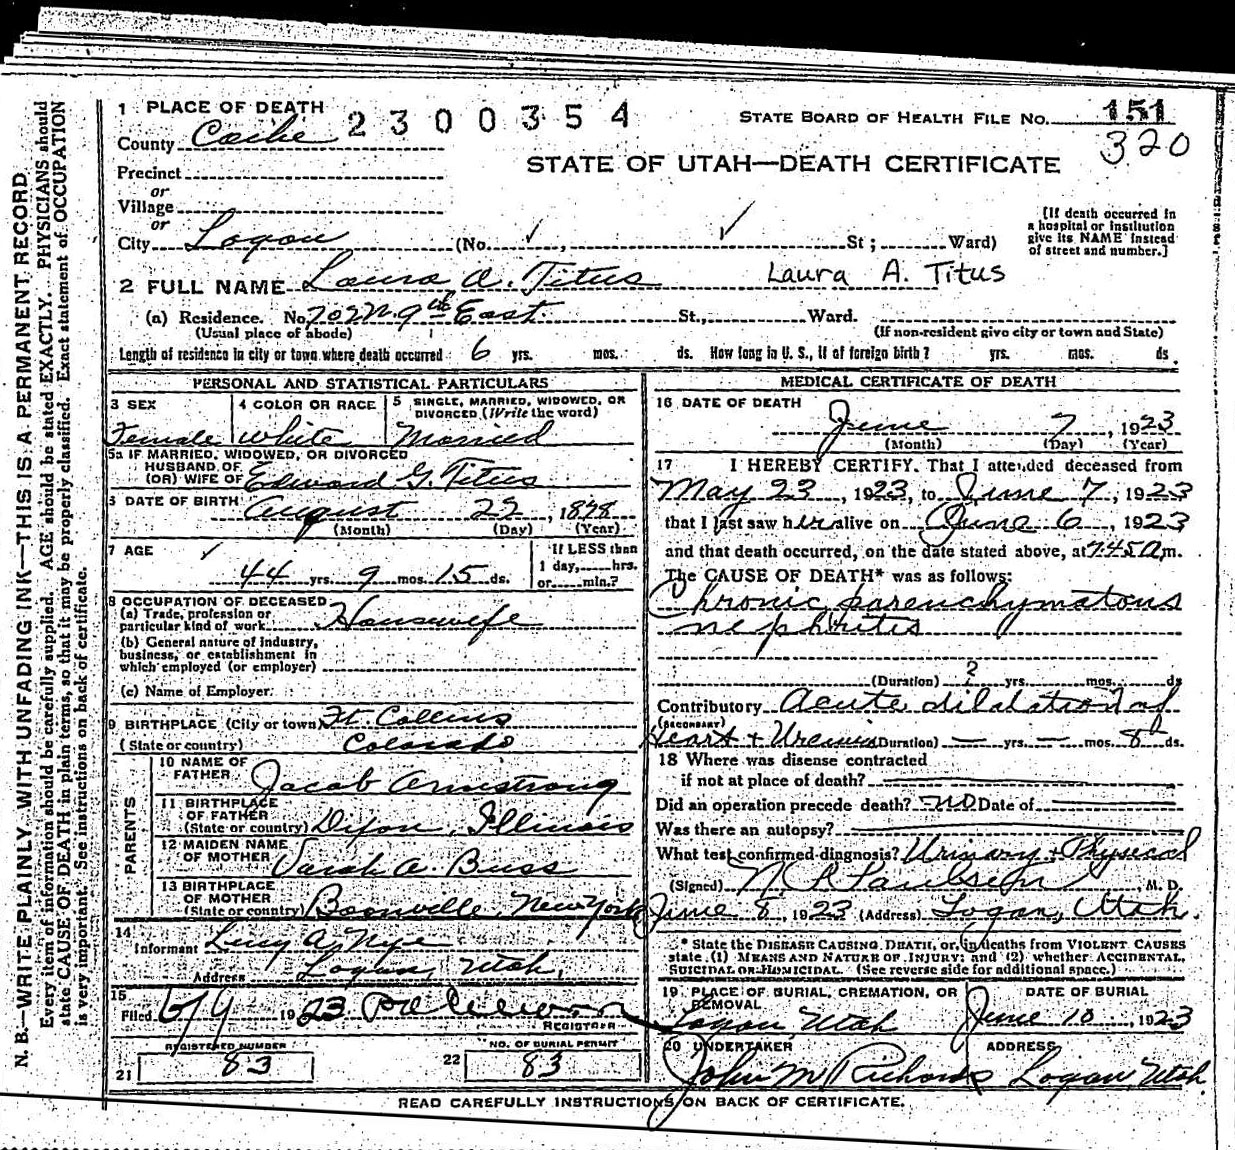 N. B.—WRITE PLAINLY, WITH UNFADING INK—THIS IS A PERMANENT RECORD
Every item of information should be carefully supplied. AGE should be stated EXACTLY. PHYSICIANS should
state CAUSE OF DEATH in plain terms, so that it may be properly classified. Exact statement of OCCUPATION
is very important. See instructions on back of certificate.
1 PLACE OF DEATH 2300354 STATE BOARD OF HEALTH FILE No. 151
County Cache 320
STATE OF UTAH—DEATH CERTIFICATE
Precinct
or
Village
or
City Logan (No. , St; Ward)
[If death occurred in
a hospital or institution
give its NAME instead
of street and number.]
2 FULL NAME Laura A. Titus Laura A. Titus
(a) Residence. No. 702 N. 9th East St., Ward.
(Usual place of abode) (If non-resident give city or town and State)
Length of residence in city or town where death occurred 6 yrs. mos. ds. How long in U. S., if of foreign birth? yrs. mos. ds.
PERSONAL AND STATISTICAL PARTICULARS
3 SEX 4 COLOR OR RACE 5 SINGLE, MARRIED, WIDOWED, OR
DIVORCED (Write the word)
Female White Married
5a IF MARRIED, WIDOWED, OR DIVORCED
HUSBAND OF
(OR) WIFE OF Edward G. Titus
6 DATE OF BIRTH August 22, 1878
(Month) (Day) (Year)
7 AGE If LESS than
1 day, hrs.
44 yrs. 9 mos. 15 ds. or min.?
8 OCCUPATION OF DECEASED
(a) Trade, profession or
particular kind of work Housewife
(b) General nature of industry,
business, or establishment in
which employed (or employer)
(c) Name of Employer
9 BIRTHPLACE (City or town) Ft. Collins
(State or country) Colorado
PARENTS
10 NAME OF
FATHER Jacob Armstrong
11 BIRTHPLACE
OF FATHER
(State or country) Dixon, Illinois
12 MAIDEN NAME
OF MOTHER Sarah A. Buss
13 BIRTHPLACE
OF MOTHER
(State or country) Boonville, New York
14
Informant Lucy A. Nye
Address Logan, Utah.
15
Filed 6/9 1923
REGISTRAR
REGISTERED NUMBER NO. OF BURIAL PERMIT
21 83 22 83
MEDICAL CERTIFICATE OF DEATH
16 DATE OF DEATH
June 7, 1923
(Month) (Day) (Year)
17 I HEREBY CERTIFY, That I attended deceased from
May 23, 1923, to June 7, 1923
that I last saw her alive on June 6, 1923
and that death occurred, on the date stated above, at 7:45 A m.
The CAUSE OF DEATH* was as follows:
Chronic parenchymatous
nephritis
(Duration) ? yrs. mos. ds
Contributory Acute dilatation of
(SECONDARY)
Heart + Uremia (Duration) — yrs. — mos. 8 ds.
18 Where was disease contracted
if not at place of death?
Did an operation precede death? no Date of
Was there an autopsy?
What test confirmed diagnosis? Urinary + Physical
(Signed) Paulsen, M. D.
June 8, 1923 (Address) Logan, Utah.
* State the DISEASE CAUSING DEATH, or, in deaths from VIOLENT CAUSES
state (1) MEANS AND NATURE OF INJURY; and (2) whether ACCIDENTAL,
SUICIDAL OR HOMICIDAL. (See reverse side for additional space.)
19 PLACE OF BURIAL, CREMATION, OR DATE OF BURIAL
REMOVAL
Logan Utah June 10, 1923
20 UNDERTAKER ADDRESS
John M Richards Logan, Utah
READ CAREFULLY INSTRUCTIONS ON BACK OF CERTIFICATE.